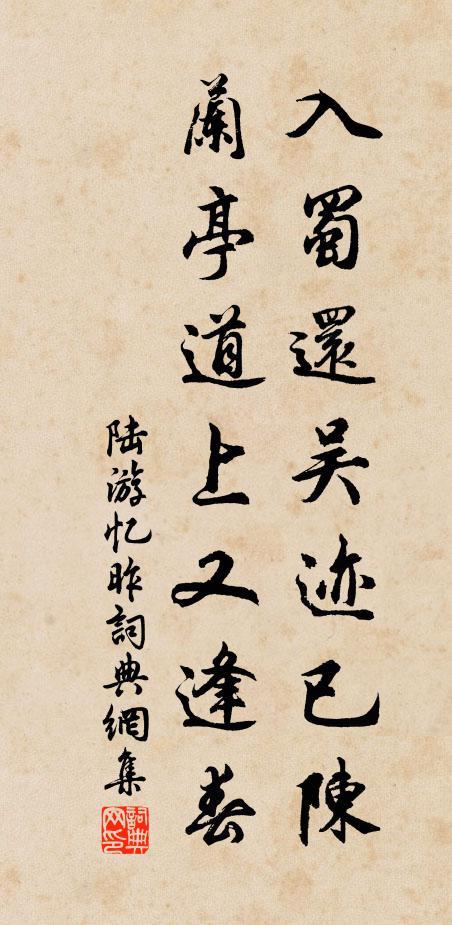 入蜀還吴迹已陳
蘭亭道上又逢春
陆游忆昨詞典網集
詞典网印